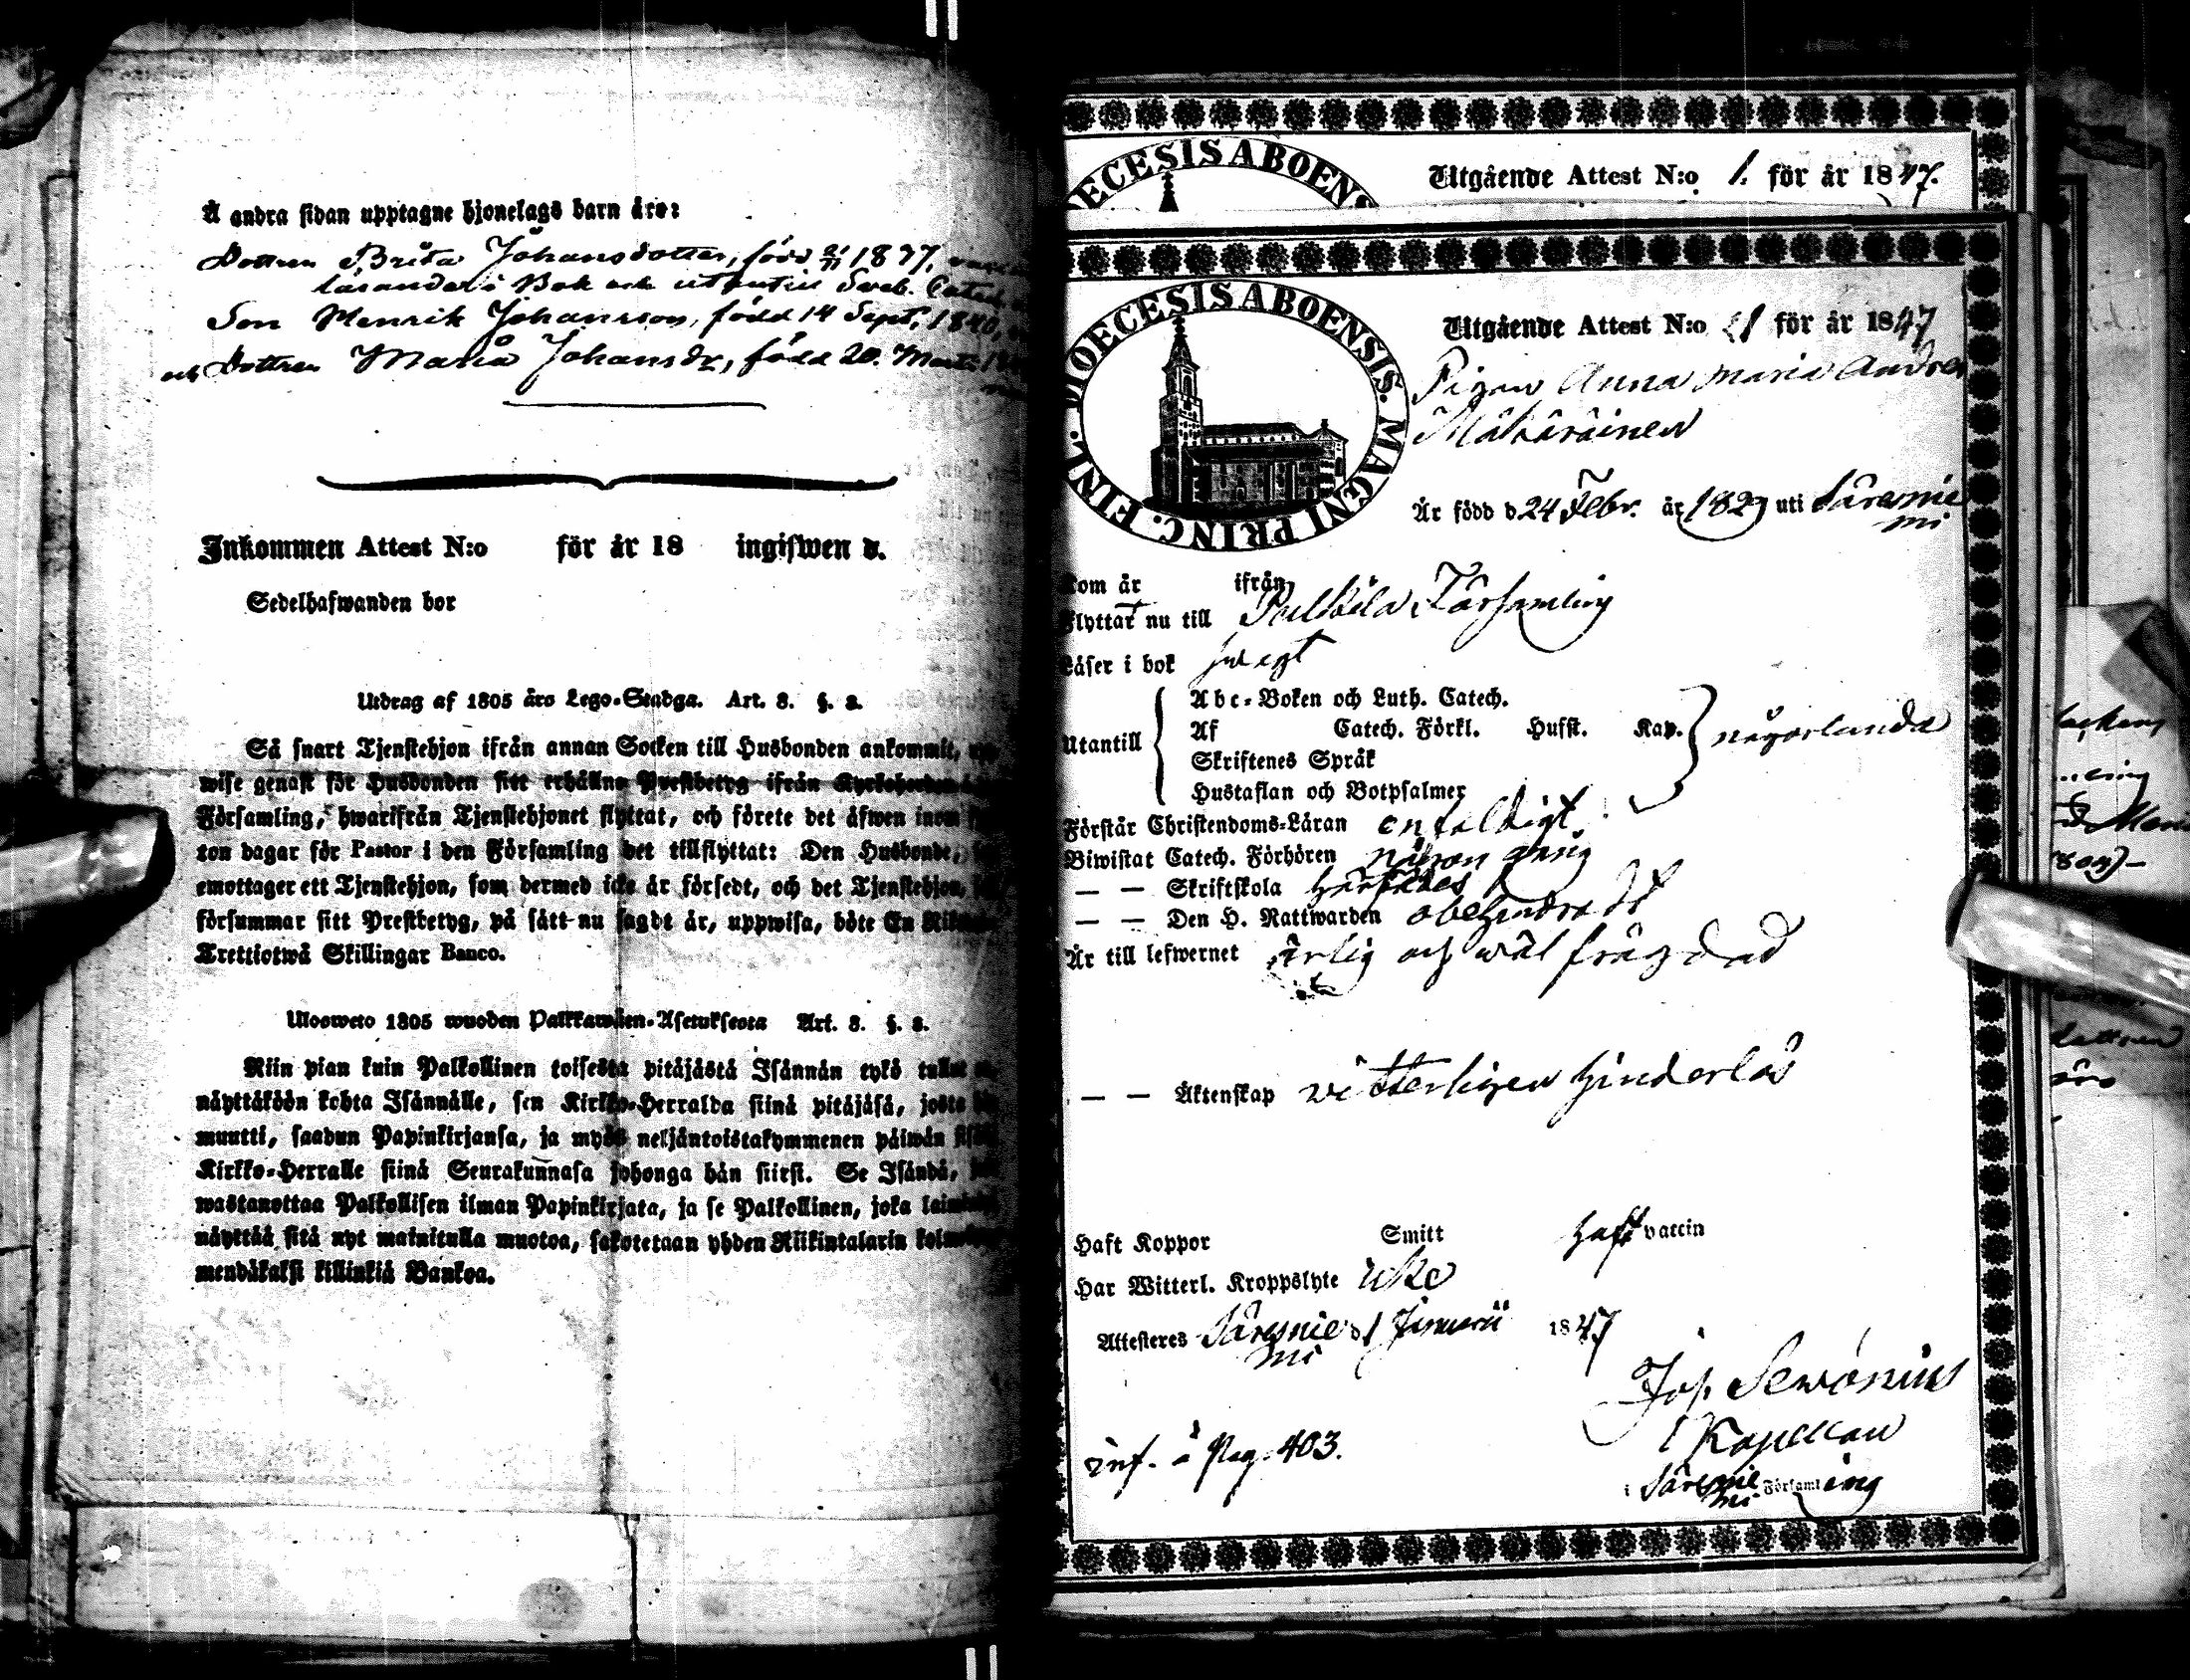 Å andra sidan upptagne hjonelags barn äro:
Dottren Brita Johansdotter, född 21/11 1837,
läsander i Bok och utantill Sveb. Catech
Son Henrik Johansson, född 14 Sept. 1840,
och Dottren Maria Johansdr, född 20. Marti 18
Inkommen Attest N:o för år 18 ingifwen d.
Sedelhafwanden bor
Utdrag af 1805 års Lego-Stadga. Art. 8. §. 8.
Så snart Tjenstehjon ifrån annan Socken till Husbonden ankommit,
wise genast för Husbonden sitt erhållna Prestbetyg ifrån Kyrkoherden
Församling, hwarifrån Tjenstehjonet flyttat, och förete det äfwen inom
ton dagar för Pastor i den Församling det tillflyttat: Den Husbonde,
emottager ett Tjenstehjon, som dermed icke är försedt, och det Tjenstehjon,
försummar sitt Prestbetyg, på sätt nu sagdt är, uppwisa, böte En
Trettiotwå Skillingar Banco.
Ulosweto 1805 wuoden Palkkawäen-Asetuksesta Art. 8. §. 8.
Niin pian kuin Palkollinen toisesta pitäjästä Isännän tykö tullut
näyttäköön kohta Isännälle, sen Kirkko-Herralda siinä pitäjäsä, josta
muutti, saadun Papinkirjansa, ja myös neljäntoistakymmenen päiwän
Kirkko-Herralle siinä Seurakunnasa johonga hän siirsi. Se Isändä,
wastanottaa Palkollisen ilman Papinkirjata, ja se Palkollinen, joka
näyttää sitä nyt mainitulla muotoa, sakotetaan yhden Riikintalarin
mendäkaksi killinkiä Bankoa.
DIOECESIS ABOENS
Utgående Attest N:o 1. för år 1847.
DIOECESIS ABOENSIS. MAGNI PRINC. FINL.
Utgående Attest N:o 21 för år 1847
Pigan Anna Maria Andrea
Mäkäräinen
Är född d. 24 Febr. år 1829 uti Säresnie
mi
Kom år ifrån
Flyttar nu till Pulkila Församling
Läser i bok swagt
Utantill
Abc-Boken och Luth. Catech.
Af Catech. Förkl. Husst. Kap. någorlunda
Skriftenes Språk
Hustaflan och Botpsalmer
Förstår Christendoms-Läran enfaldigt
Biwistat Catech. Förhören någon gång
— — Skriftskola härstädes
— — Den H. Nattwarden obehindradt
Är till lefwernet ärlig och wäl frägdad
— — Äktenskap vitterligen hinderlös
Haft Koppor Smitt haft vaccin
Har Witterl. Kroppslyte icke
Attesteres Säresnie d 1 Januarii 1847
mi
Jos. Sewonius
Kapellan
i Säresnie Församling
mi
inf. å Pag. 403.